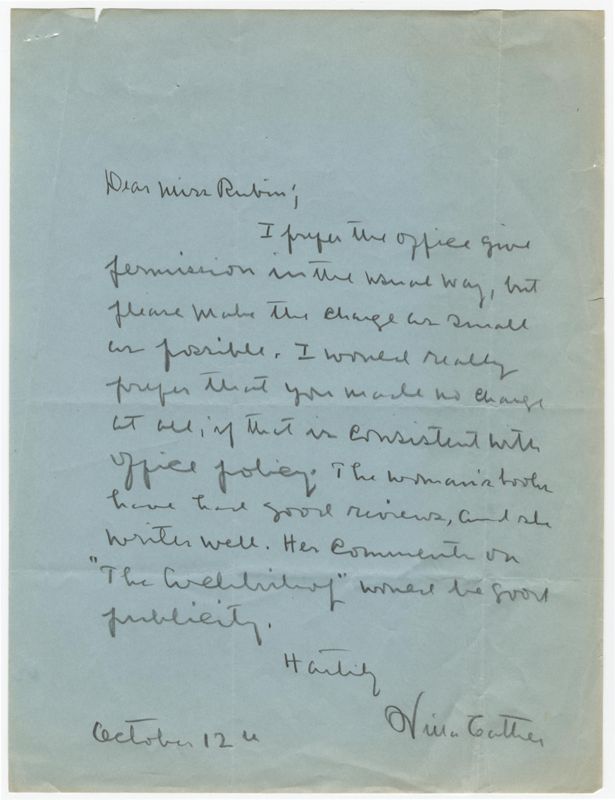 Dear Miss Rubin;
I prefer the office give
permission in the usual way, but
please make the charge as small
as possible. I would really
prefer that you made no charge
at all, if that is consistent with
office policy. The woman's books
have had good reviews, and she
writes well. Her comments on
"The Archbishop" would be good
publicity.
Hastily
Willa Cather
October 12th